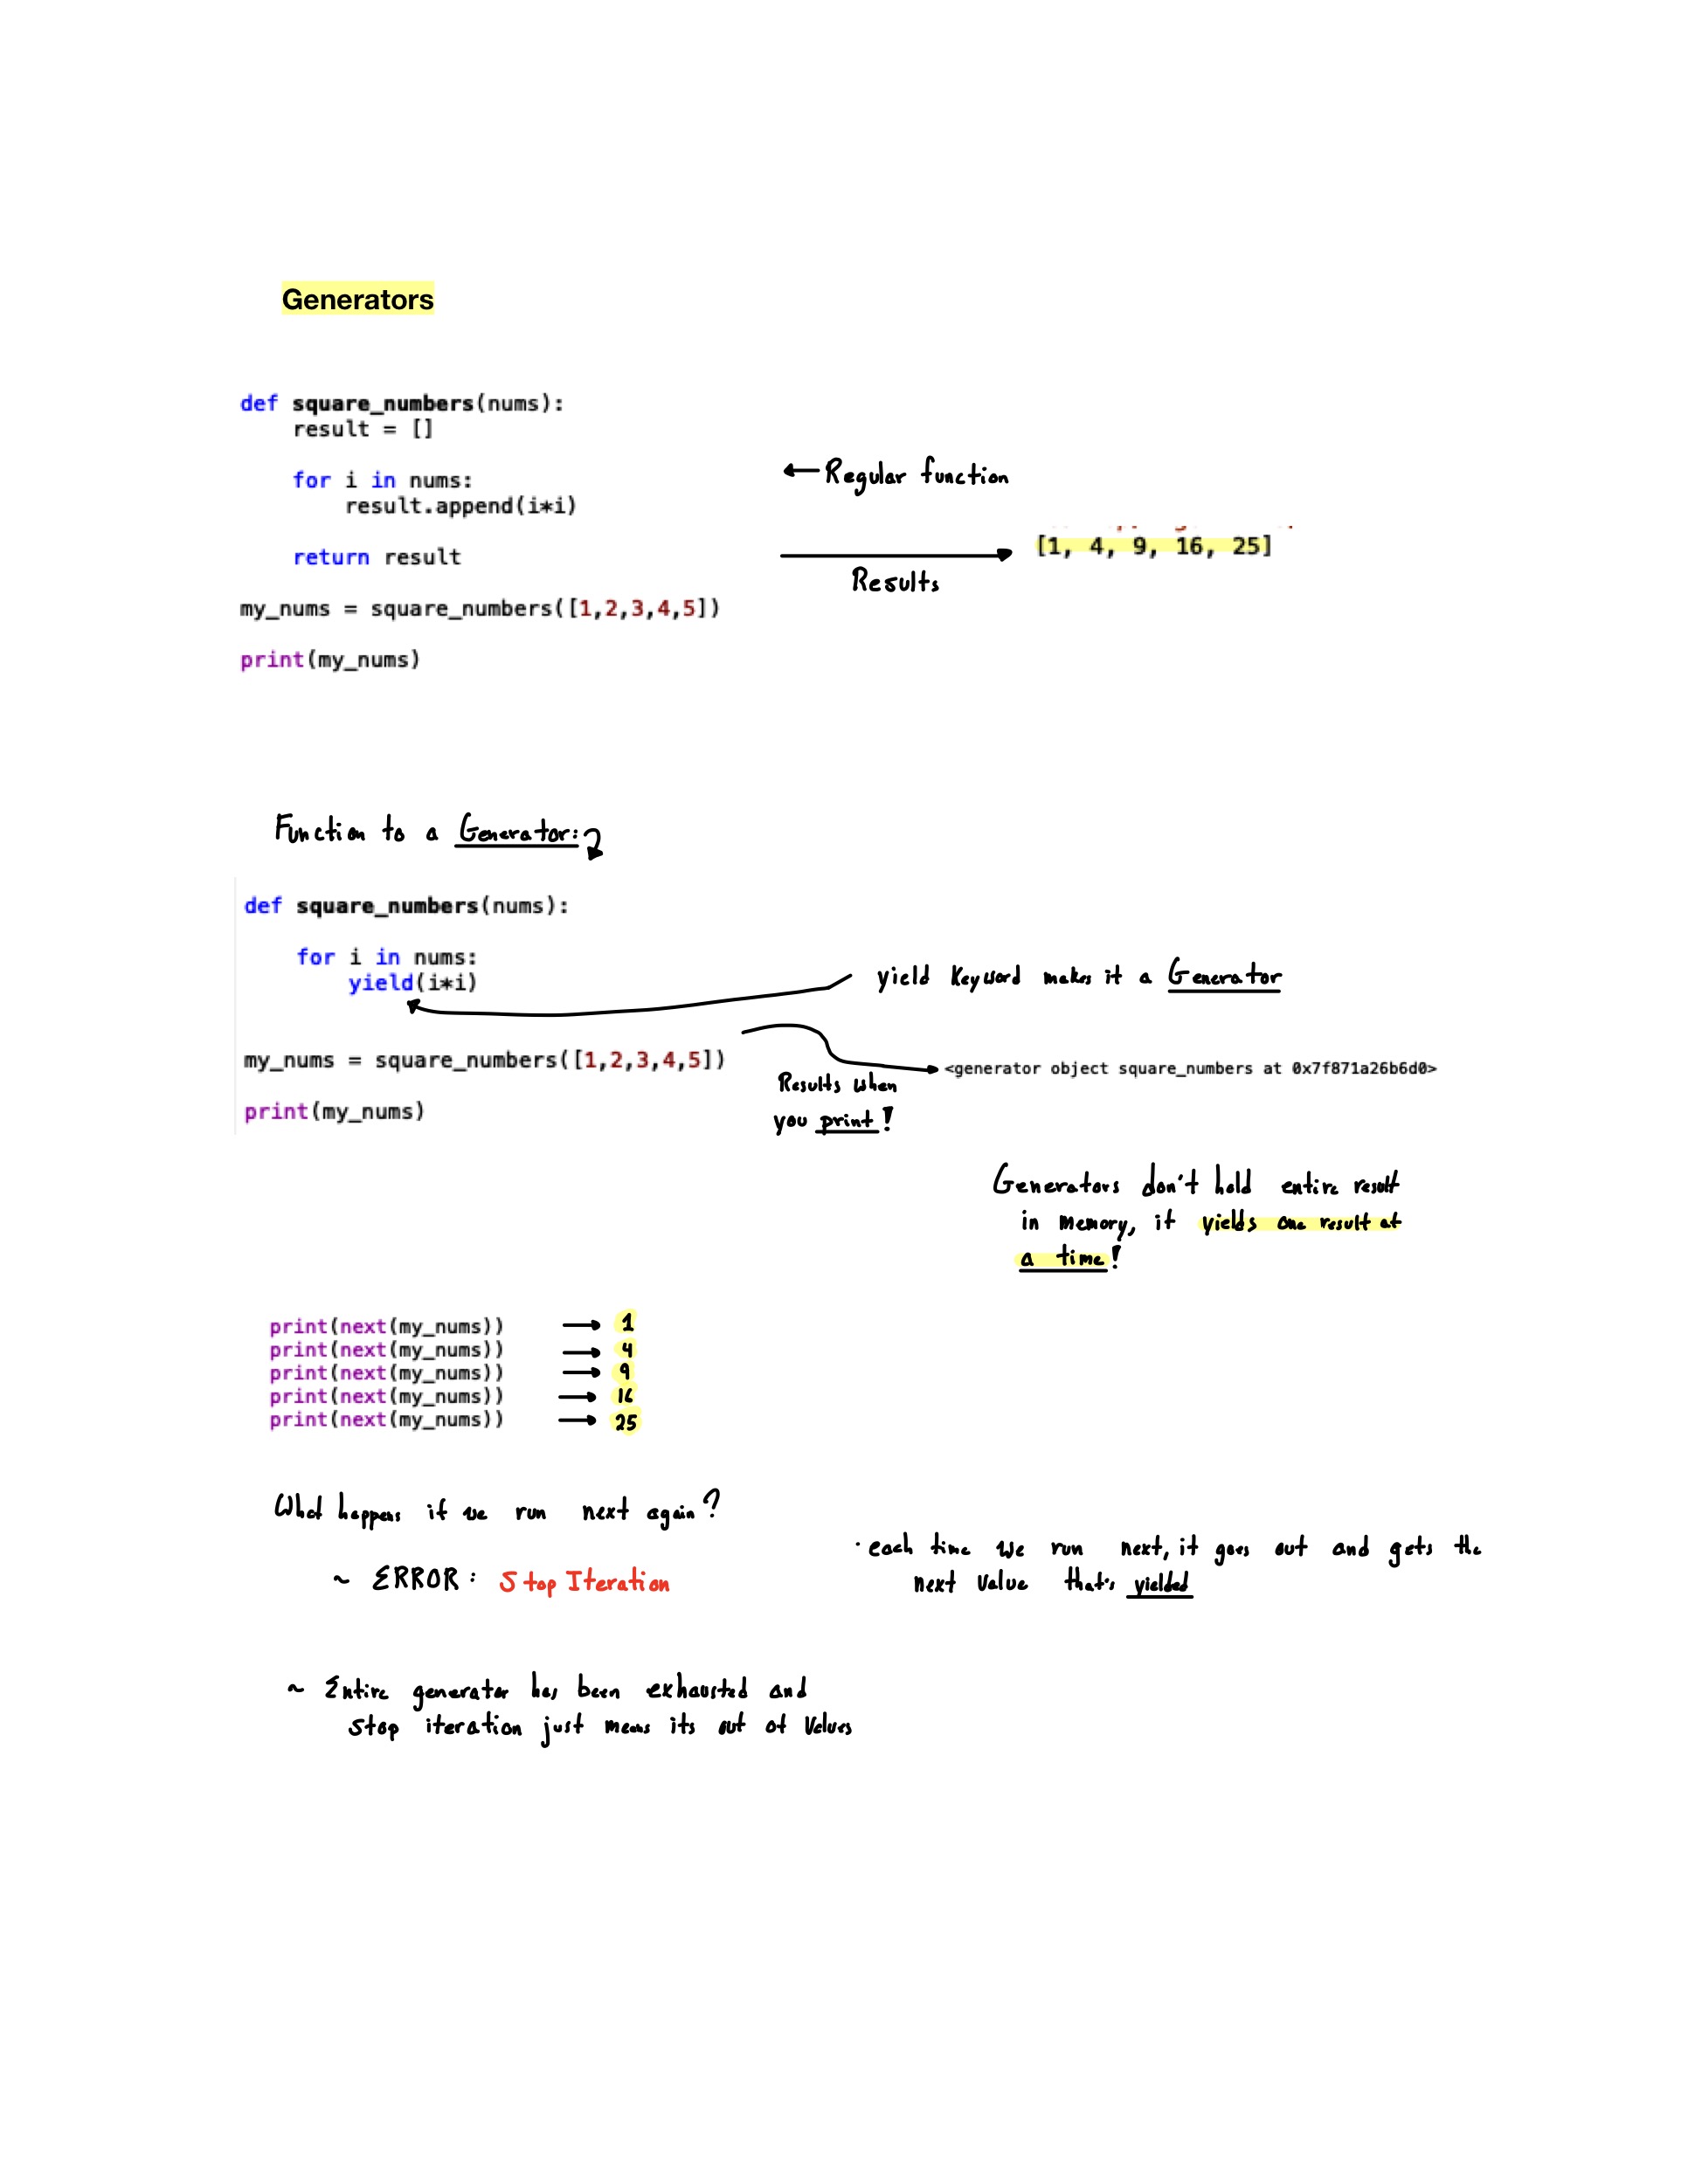 Generators
def square_numbers(nums):
    result = []
    for i in nums:
        result.append(i*i)
    return result
my_nums = square_numbers([1,2,3,4,5])
print(my_nums)
← Regular function
Results
[1, 4, 9, 16, 25]
Function to a Generator:
def square_numbers(nums):
    for i in nums:
        yield(i*i)
my_nums = square_numbers([1,2,3,4,5])
print(my_nums)
yield keyword makes it a Generator
Results when
you print!
<generator object square_numbers at 0x7f871a26b6d0>
Generators don't hold entire result
in memory, it yields one result at
a time!
print(next(my_nums)) → 1
print(next(my_nums)) → 4
print(next(my_nums)) → 9
print(next(my_nums)) → 16
print(next(my_nums)) → 25
What happens if we run next again?
~ ERROR: Stop Iteration
· each time we run next, it goes out and gets the
next value that's yielded
~ Entire generator has been exhausted and
stop iteration just means its out of values